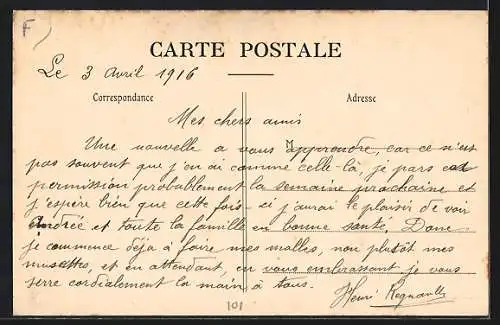 F
CARTE POSTALE
Le 3 Avril 1916
Correspondance
Adresse
Mes chers amis
Une nouvelle a vous apprendre, car ce n'est
pas souvent que j'en ai comme celle-là, je pars en
permission probablement la semaine prochaine et
j'espère bien que cette fois-ci j'aurai le plaisir de voir
Andrée et toute la famille en bonne santé, Donc
je commence déjà à faire mes malles, non plutôt mes
musettes, et en attendant, en vous embrassant je vous
serre cordialement la main à tous.
Henri Regnault
101